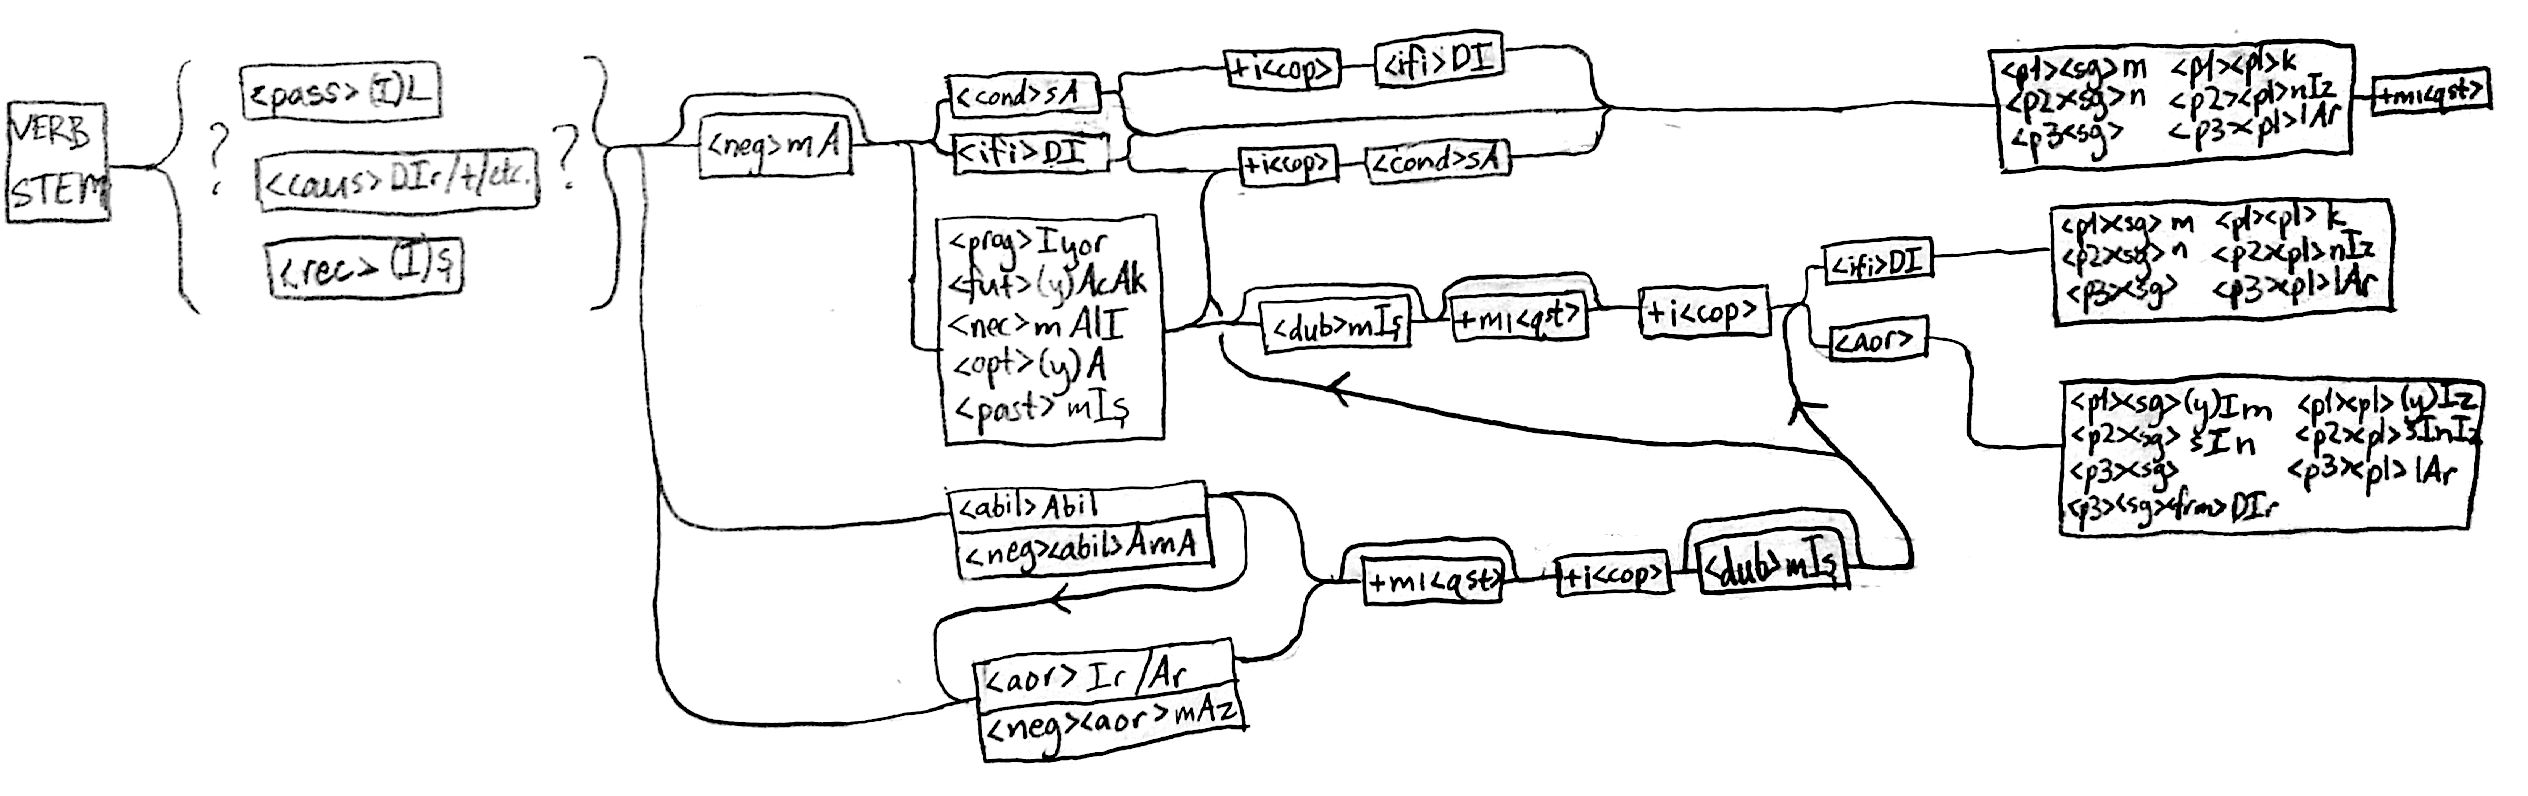 VERB
STEM
?
<pass>(I)L
<caus>DIr/t/etc.
<rec>(I)ş
?
<neg>mA
<cond>sA
<ifi>DI
+i<cop>
<ifi>DI
+i<cop>
<cond>sA
<p1><sg>m <p1><pl>k
<p2><sg>n <p2><pl>nIz
<p3<sg> <p3><pl>lAr
+mı<qst>
<prog>Iyor
<fut>(y)AcAk
<nec>mAlI
<opt>(y)A
<past>mIş
<dub>mIş
+mı<qst>
+i<cop>
<ifi>DI
<aor>
<p1><sg>m <p1><pl>k
<p2><sg>n <p2><pl>nIz
<p3><sg> <p3><pl>lAr
<p1><sg>(y)Im <p1><pl>(y)Iz
<p2><sg>sIn <p2><pl>sInIz
<p3><sg> <p3><pl>lAr
<p3><sg><frm>DIr
<abil>Abil
<neg><abil>AmA
<aor>Ir/Ar
<neg><aor>mAz
+mı<qst>
+i<cop>
<dub>mIş